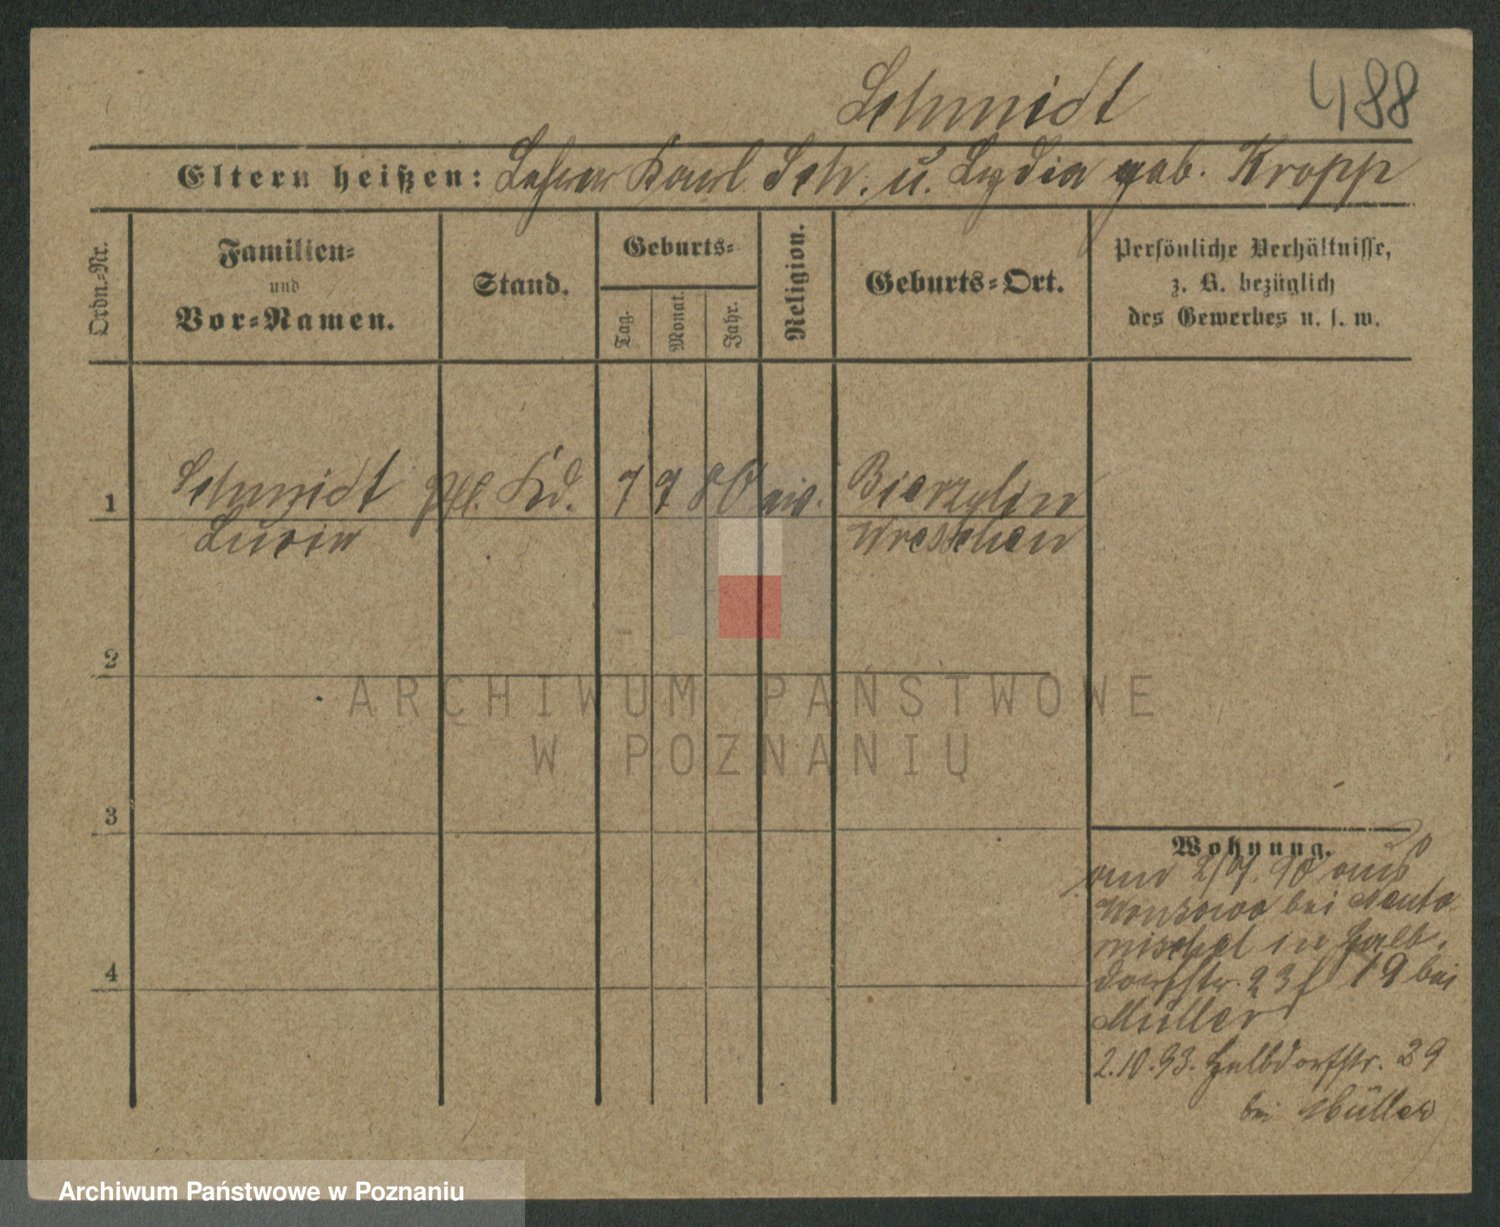 Schmidt
488
Eltern heißen: Lehrer Karl Sch. u. Lydia geb. Kropp
Ordn.-Nr.
Familien-
und
Vor-Namen.
Stand.
Geburts-
Tag.
Monat.
Jahr.
Religion.
Geburts-Ort.
Persönliche Verhältnisse,
z. B. bezüglich
des Gewerbes u. s. w.
1
Schmidt Pfl. Kd. 7 9 80 ev. Bierzglin
Lucie Wreschen
2
ARCHIWUM PAŃSTWOWE
W POZNANIU
3
Wohnung.
2/7. 90 aus
bei Neuto
mischel in Halb
dorfstr. 23 19 bei
Müller
2.10.93. Halbdorfstr. 39
bei Müller
4
Archiwum Państwowe w Poznaniu